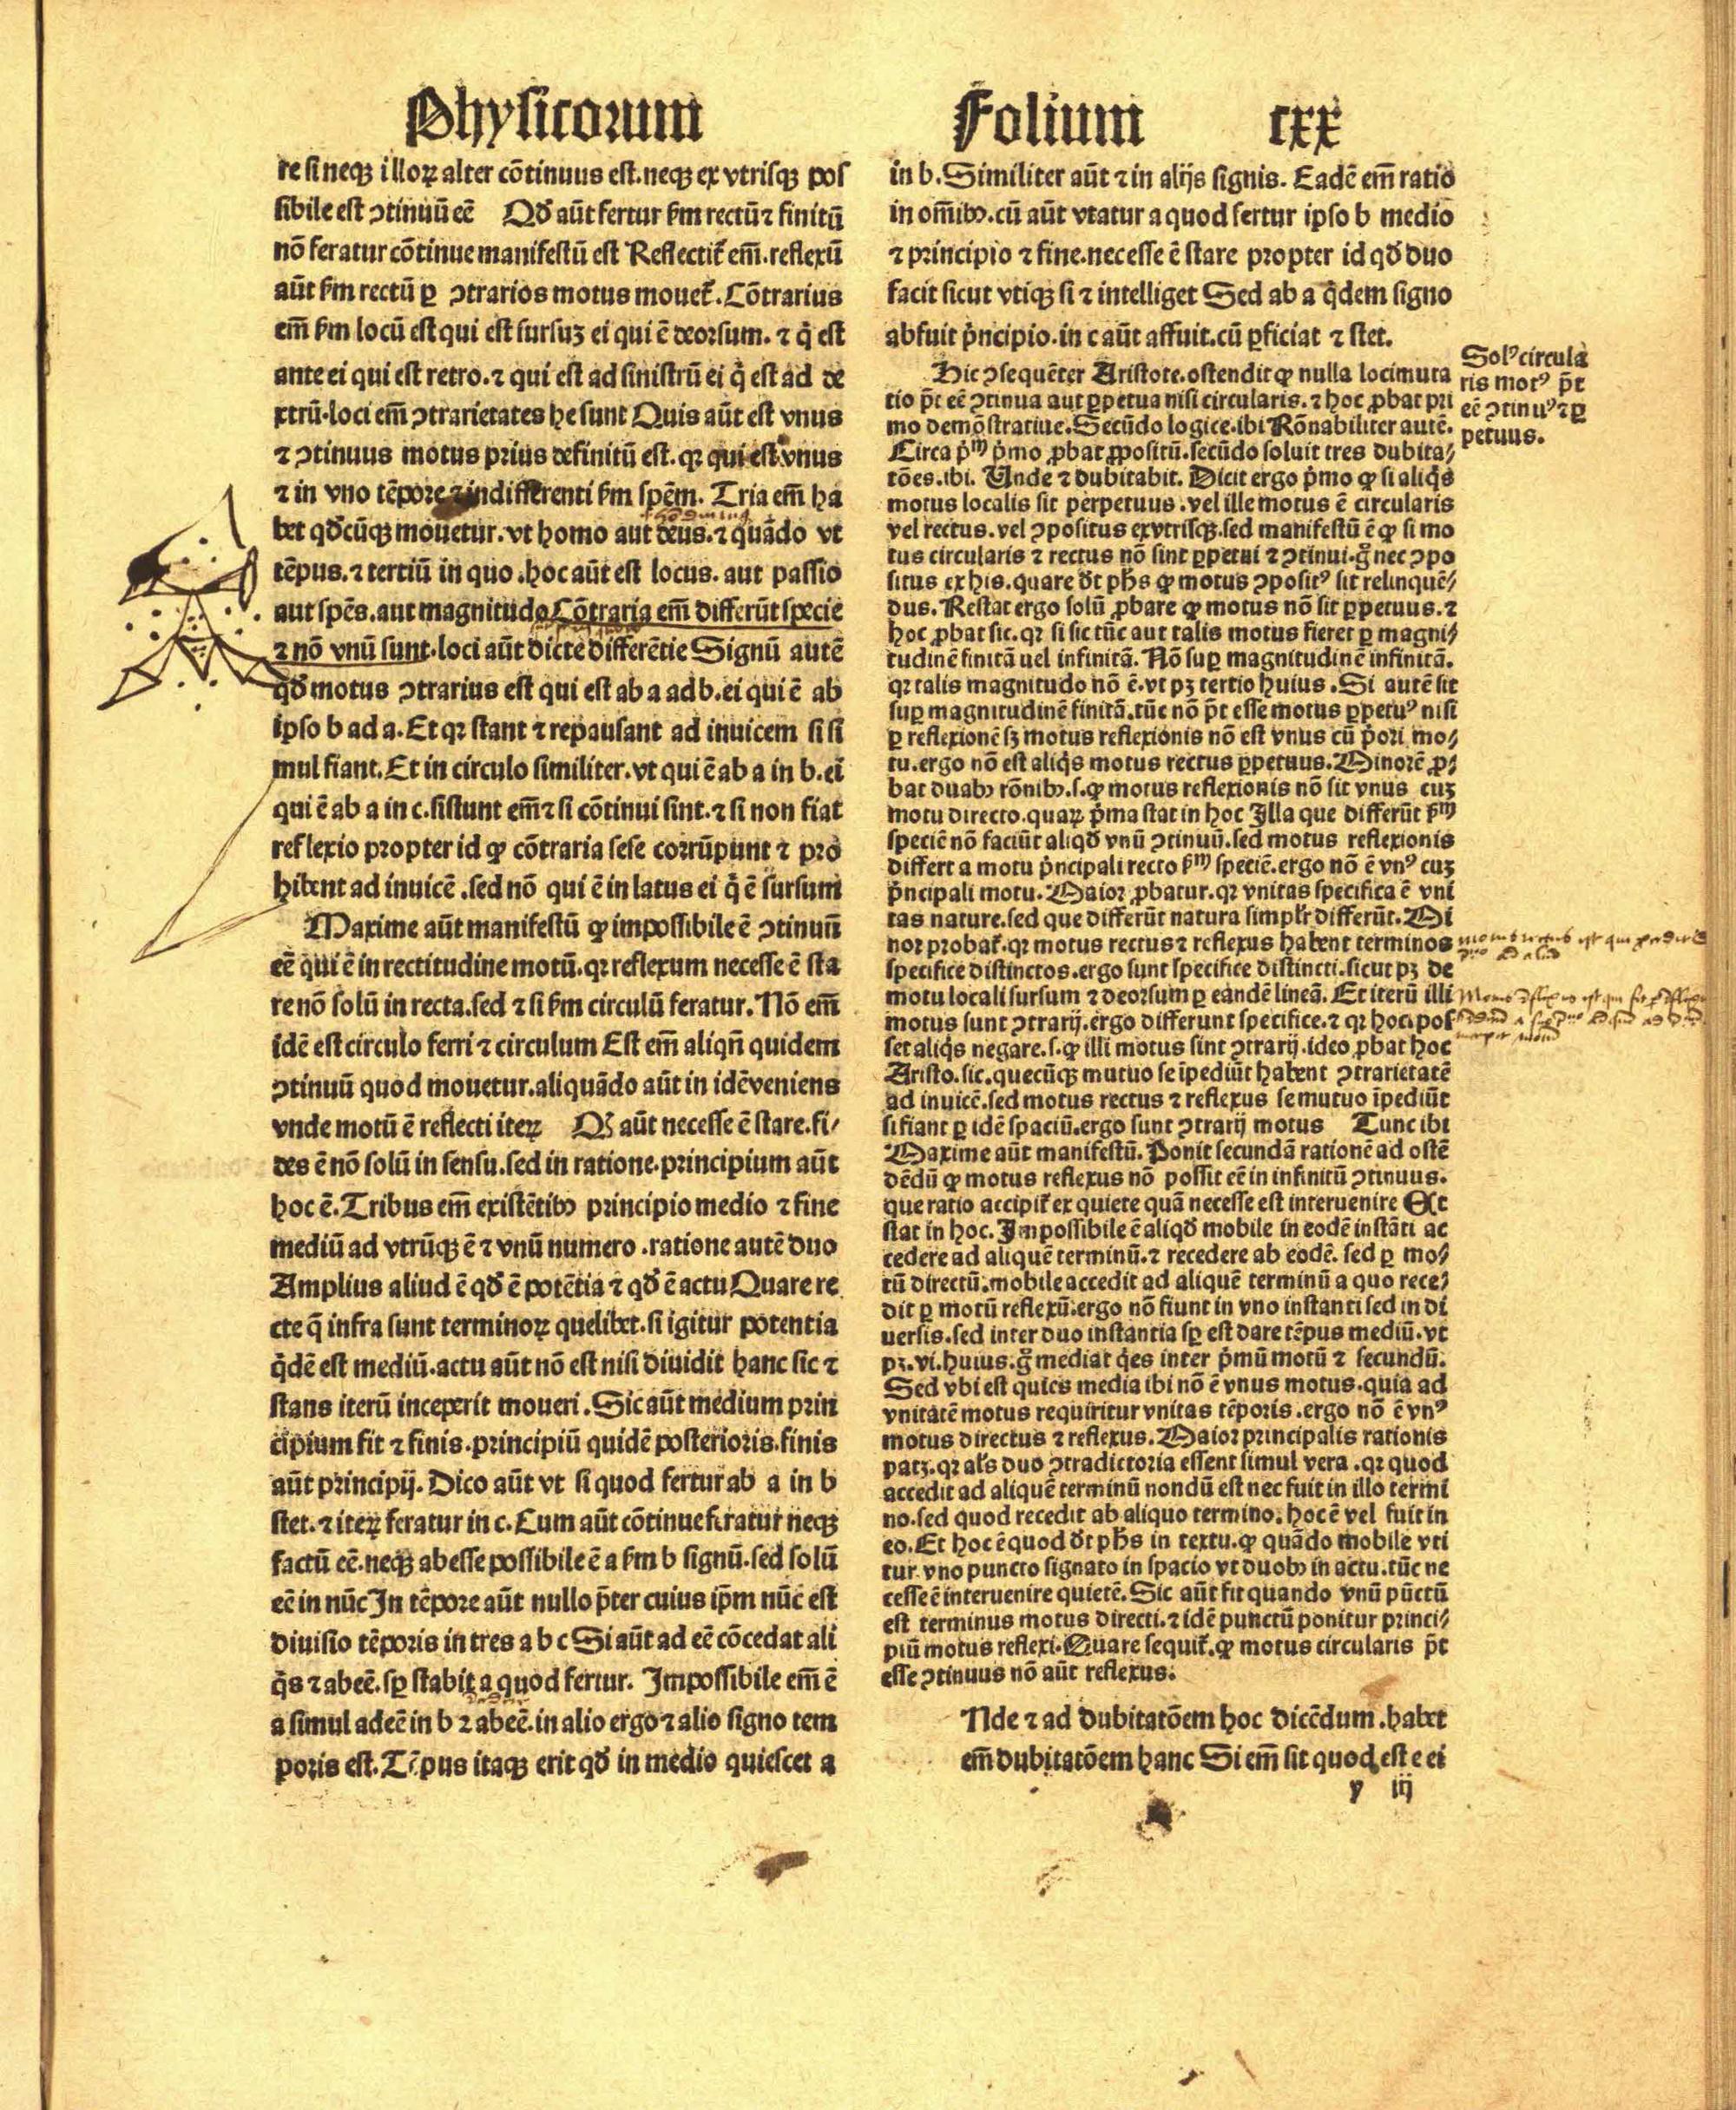 Physicorum
re si neqꝫ illoꝝ alter cōtinuus est. neqꝫ ex vtrisqꝫ pos
sibile est ꝯtinuū eē Qđ aūt fertur ẜm rectū ⁊ finitū
nō feratur cōtinue manifestū est Reflectit̄ em̄. reflexū
aūt ẜm rectū ꝑ ꝯtrarios motus mouet̄. Cōtrarius
em̄ ẜm locū est qui est sursuꝫ ei qui ē deorsum. ⁊ q̇ est
ante ei qui est retro. ⁊ qui est ad sinistrū ei q̇ est ad de
xtrū. loci em̄ ꝯtrarietates he sunt Quis aūt est vnus
⁊ ꝯtinuus motus prius definitū est. qꝛ qui est vnus
⁊ in vno tēpore ⁊ indifferenti ẜm spēm. Tria em̄ ha
bet qđcūqꝫ mouetur. vt homo aut deus. ⁊ quādo vt
tēpus. ⁊ tertiū in quo. hoc aūt est locus. aut passio
aut spēs. aut magnitudo Cōtraria em̄ differūt specie
⁊ nō vnū sunt. loci aūt dicte differētie Signū autē
qđ motus ꝯtrarius est qui est ab a ad b. ei qui ē ab
ipso b ad a. Et qꝛ stant ⁊ repausant ad inuicem si si
mul fiant. Et in circulo similiter. vt qui ē ab a in b. ei
qui ē ab a in c. sistunt em̄ ⁊ si cōtinui sint. ⁊ si non fiat
reflexio propter id ꝙ cōtraria sese corrūpunt ⁊ pro
hibent ad inuicē. sed nō qui ē in latus ei q̇ ē sursum
Maxime aūt manifestū ꝙ impossibile ē ꝯtinuū
eē qui ē in rectitudine motū. qꝛ reflexum necesse ē sta
re nō solū in recta. sed ⁊ si ẜm circulū feratur. Nō em̄
idē est circulo ferri ⁊ circulum Est em̄ aliqn̄ quidem
ꝯtinuū quod mouetur. aliquādo aūt in idē veniens
vnde motū ē reflecti iteꝝ Qꝫ aūt necesse ē stare. fi⸗
des ē nō solū in sensu. sed in ratione. principium aūt
hoc ē. Tribus em̄ existētibꝰ principio medio ⁊ fine
mediū ad vtrūqꝫ ē ⁊ vnū numero. ratione autē duo
Amplius aliud ē qđ ē potētia ⁊ qđ ē actu Quare re
cte q̄ infra sunt terminoꝝ quelibet. si igitur potentia
q̇dē est mediū. actu aūt nō est nisi diuidit hanc sic ⁊
stans iterū inceperit moueri. Sic aūt medium prin
cipium fit ⁊ finis. principiū quidē posterioris. finis
aūt principij. Dico aūt vt si quod fertur ab a in b
stet. ⁊ iteꝝ feratur in c. Cum aūt cōtinue feratur neqꝫ
factū eē. neqꝫ abesse possibile ē a ẜm b signū. sed solū
eē in nūc In tēpore aūt nullo p̄ter cuius ip̄m nūc est
diuisio tēporis in tres a b c Si aūt ad eē cōcedat ali
q̇s ⁊ abeē. sꝑ stabit a quod fertur. Impossibile em̄ ē
a simul adeē in b ⁊ abeē. in alio ergo ⁊ alio signo tem
poris est. Tēpus itaqꝫ erit qđ in medio quiescet a
Folium cxx
in b. Similiter aūt ⁊ in alijs signis. Eadē em̄ ratio
in om̄ibꝰ. cū aūt vtatur a quod fertur ipso b medio
⁊ principio ⁊ fine. necesse ē stare propter id qđ duo
facit sicut vtiqꝫ si ⁊ intelliget Sed ab a q̇dem signo
abfuit p̄ncipio. in c aūt affuit. cū ꝑficiat ⁊ stet.
Hic ꝯsequēter Aristote. ostendit ꝙ nulla loci muta
tio p̄t eē ꝯtinua aut ꝑpetua nisi circularis. ⁊ hoc ꝓbat pri
mo demōstratiue. Secūdo logice. ibi Rōnabiliter autē.
Circa p̄ᵐ p̄mo ꝓbat ꝓpositū. secūdo soluit tres dubita⸗
tōes. ibi. Unde ⁊ dubitabit. Dicit ergo p̄mo ꝙ si aliq̇s
motus localis sit perpetuus. vel ille motus ē circularis
vel rectus. vel ꝯpositus ex vtrisqꝫ. sed manifestū ē ꝙ si mo
tus circularis ⁊ rectus nō sint ꝑpetui ⁊ ꝯtinui. gͦ nec ꝯpo
situs ex his. quare đt ph̄s ꝙ motus ꝯpositꝰ sit relinquē⸗
dus. Restat ergo solū ꝓbare ꝙ motus nō sit ꝑpetuus. ⁊
hoc ꝓbat sic. qꝛ si sic tūc aut talis motus fieret ꝑ magni⸗
tudinē finitā uel infinitā. Nō suꝑ magnitudinē infinitā.
qꝛ talis magnitudo nō ē. vt pꝫ tertio huius. Si autē sit
suꝑ magnitudinē finitā. tūc nō p̄t esse motus ꝑpetuꝰ nisi
ꝑ reflexionē sꝫ motus reflexionis nō est vnus cū p̄ori mo⸗
tu. ergo nō est aliq̇s motus rectus ꝑpetuus. Minorē ꝓ⸗
bat duabꝰ rōnibꝰ. s. ꝙ motus reflexionis nō sit vnus cuꝫ
motu directo. quaꝝ p̄ma stat in hoc Illa que differūt ẜᵐ
speciē nō faciūt aliqđ vnū ꝯtinuū. sed motus reflexionis
differt a motu p̄ncipali recto ẜᵐ speciē. ergo nō ē vnꝰ cuꝫ
p̄ncipali motu. Maior ꝓbatur. qꝛ vnitas specifica ē vni
tas nature. sed que differūt natura simplr̄ differūt. Mi
nor probat̄. qꝛ motus rectus ⁊ reflexus habent terminos
specifice distinctos. ergo sunt specifice distincti. sicut pꝫ de
motu locali sursum ⁊ deorsum ꝑ eandē lineā. Et iterū illi
motus sunt ꝯtrarij. ergo differunt specifice. ⁊ qꝛ hoc pos
set aliq̇s negare. s. ꝙ illi motus sint ꝯtrarij. ideo ꝓbat hoc
Aristo. sic. quecūqꝫ mutuo se īpediūt habent ꝯtrarietatē
ad inuicē. sed motus rectus ⁊ reflexus se mutuo īpediūt
si fiant ꝑ idē spaciū. ergo sunt ꝯtrarij motus Tunc ibi
Maxime aūt manifestū. Ponit secundā rationē ad ostē
dēdū ꝙ motus reflexus nō possit eē in infinitū ꝯtinuus.
que ratio accipit̄ ex quiete quā necesse est interuenire Et
stat in hoc. Impossibile ē aliqđ mobile in eodē instāti ac
cedere ad aliquē terminū. ⁊ recedere ab eodē. sed ꝑ mo⸗
tū directū. mobile accedit ad aliquē terminū a quo rece⸗
dit ꝑ motū reflexū. ergo nō fiunt in vno instanti sed in di
uersis. sed inter duo instantia sꝑ est dare tēpus mediū. vt
pꝫ. vi. huius. gͦ mediat q̇es inter p̄mū motū ⁊ secundū.
Sed vbi est quies media ibi nō ē vnus motus. quia ad
vnitatē motus requiritur vnitas tēporis. ergo nō ē vnꝰ
motus directus ⁊ reflexus. Maior principalis rationis
patꝫ. qꝛ al̄s duo ꝯtradictoria essent simul vera. qꝛ quod
accedit ad aliquē terminū nondū est nec fuit in illo termi
no. sed quod recedit ab aliquo termino. hoc ē vel fuit in
eo. Et hoc ē quod đt ph̄s in textu. ꝙ quādo mobile vti
tur vno puncto signato in spacio vt duobꝰ in actu. tūc ne
cesse ē interuenire quietē. Sic aūt fit quando vnū pūctū
est terminus motus directi. ⁊ idē punctū ponitur princi⸗
piū motus reflexi. Quare sequit̄. ꝙ motus circularis p̄t
esse ꝯtinuus nō aūt reflexus.
Nde ⁊ ad dubitatōem hoc dicēdum. habet
em̄ dubitatōem hanc Si em̄ sit quod est e ei
y iij
Solꝰ circula
ris motꝰ p̄t
eē ꝯtinuꝰ ⁊ ꝑ
petuus.